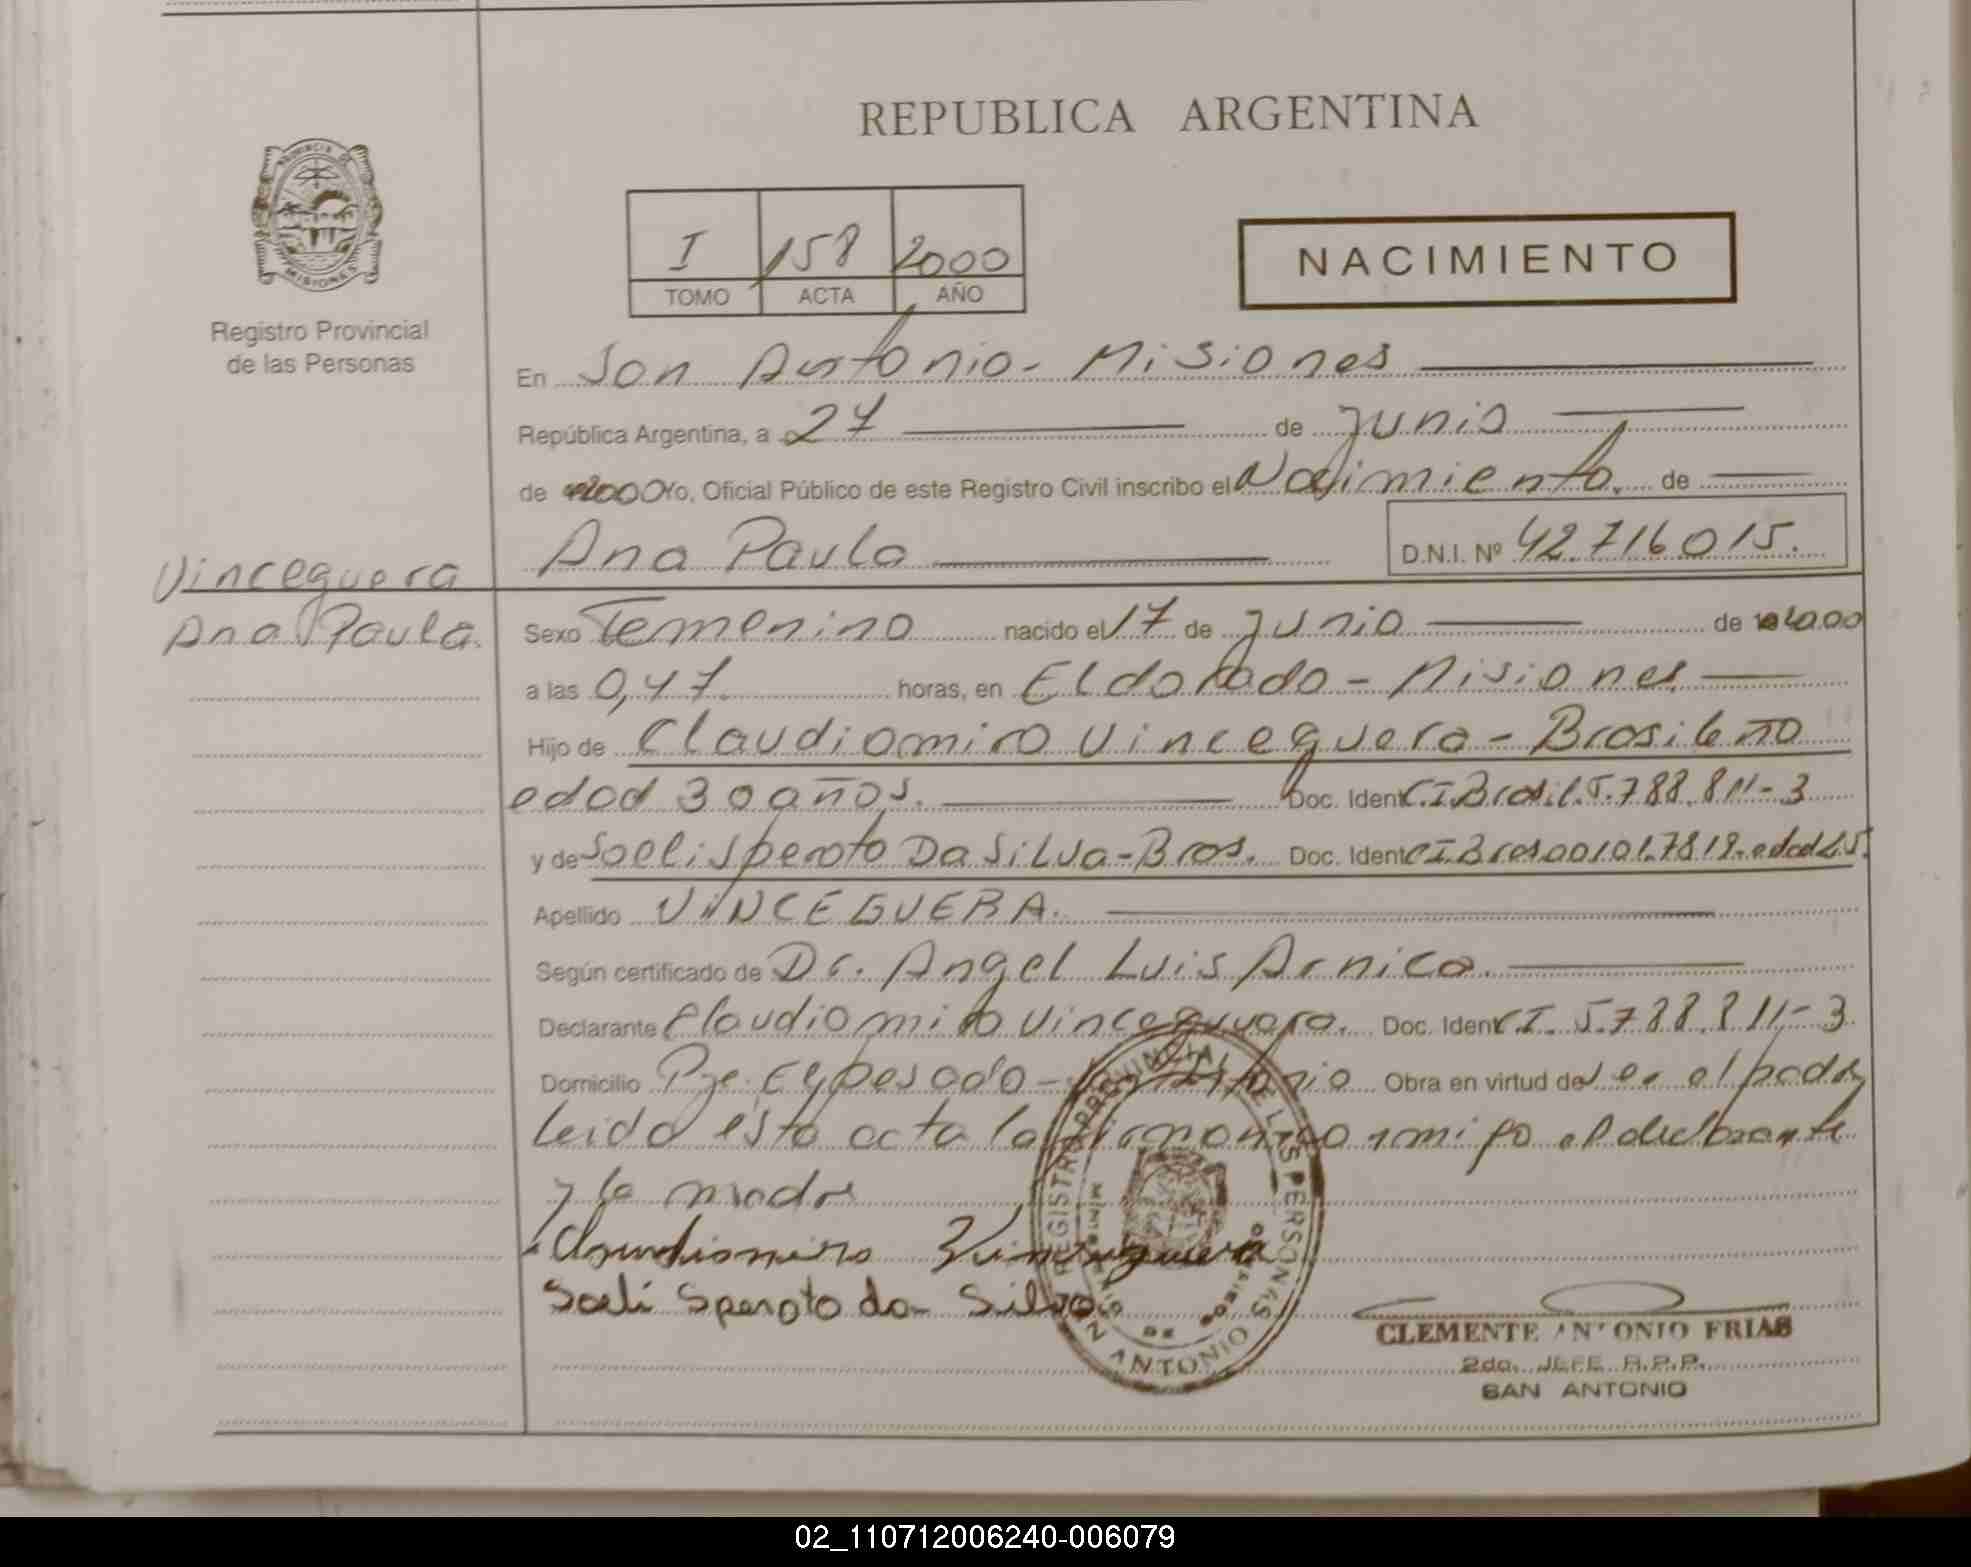 REPUBLICA ARGENTINA
PROVINCIA DE MISIONES
Registro Provincial
de las Personas
I 158 2000
TOMO ACTA AÑO
NACIMIENTO
En San Antonio - Misiones
República Argentina, a 27 de Junio
de 2000 Yo, Oficial Público de este Registro Civil inscribo el Nacimiento. de
Ana Paula D.N.I. Nº 42.716015.
Vinceguera
Ana Paula.
Sexo Femenino nacido el 17 de Junio de 2000
a las 0,47. horas, en Eldorado - Misiones
Hijo de Claudiomiro Vinceguera - Brasileño
edad 30 años. Doc. Ident C.I. Brasil. 5.788.811-3
y de Soeli Speroto Da Silva - Bras. Doc. Ident C I Bras 00101.7819. edad
Apellido VINCEGUERA.
Según certificado de Dr. Angel Luis Arnica.
Declarante Claudiomiro Vinceguera. Doc. Ident C.I. 5.788.811-3
Domicilio Pje. - San Antonio Obra en virtud de ser el padre
leida esta acta la firman conmigo el declarante
y la madre
Claudiomiro Vinceguera
Soeli Speroto da Silva
REGISTRO PROVINCIAL DE LAS PERSONAS
SAN ANTONIO
CLEMENTE ANTONIO FRIAS
2do. JEFE R.P.P.
SAN ANTONIO
02_110712006240-006079